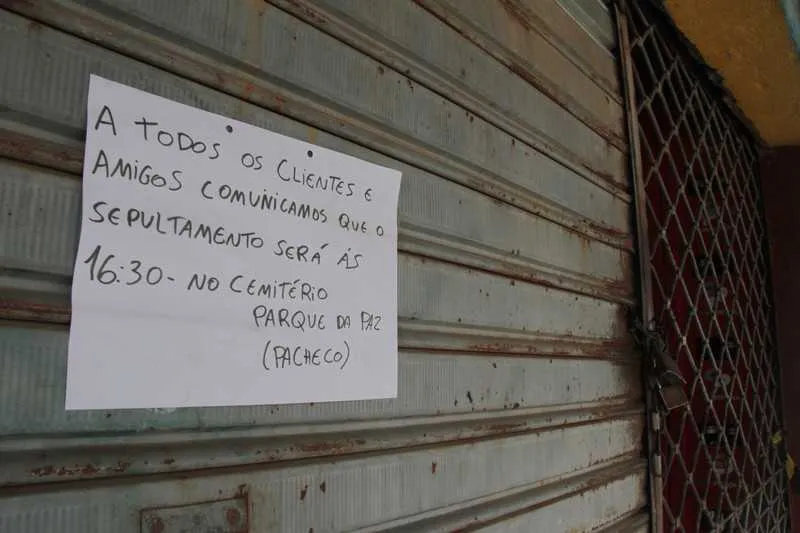 A TODOS OS CLIENTES E
AMIGOS COMUNICAMOS QUE O
SEPULTAMENTO SERÁ ÁS
16:30 - NO CEMITÉRIO
PARQUE DA PAZ
(PACHECO)